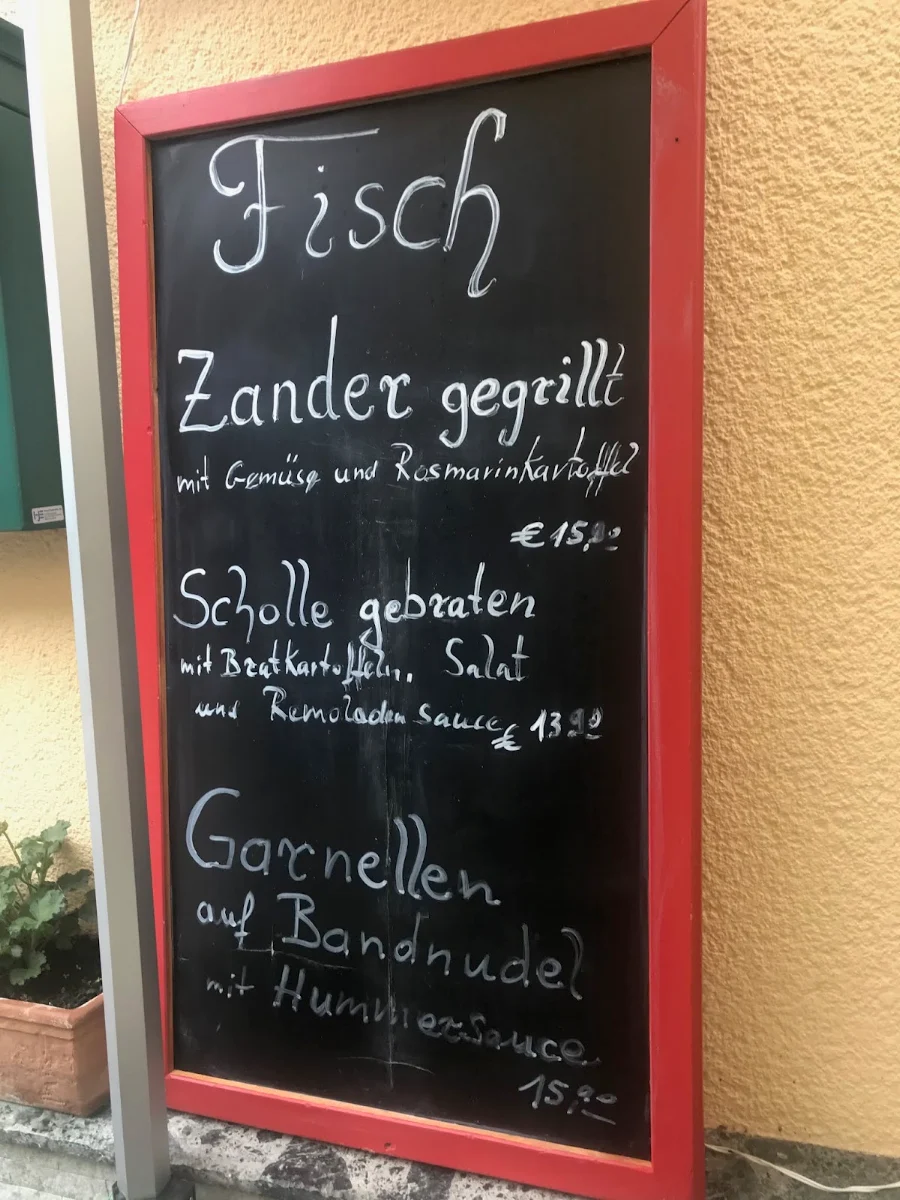 Fisch
Zander gegrillt
mit Gemüse und Rosmarinkartoffel
€ 15,90
Scholle gebraten
mit Bratkartoffeln, Salat
und Remoladen Sauce € 13 90
Garnellen
auf Bandnudel
mit Hummersauce
15,90